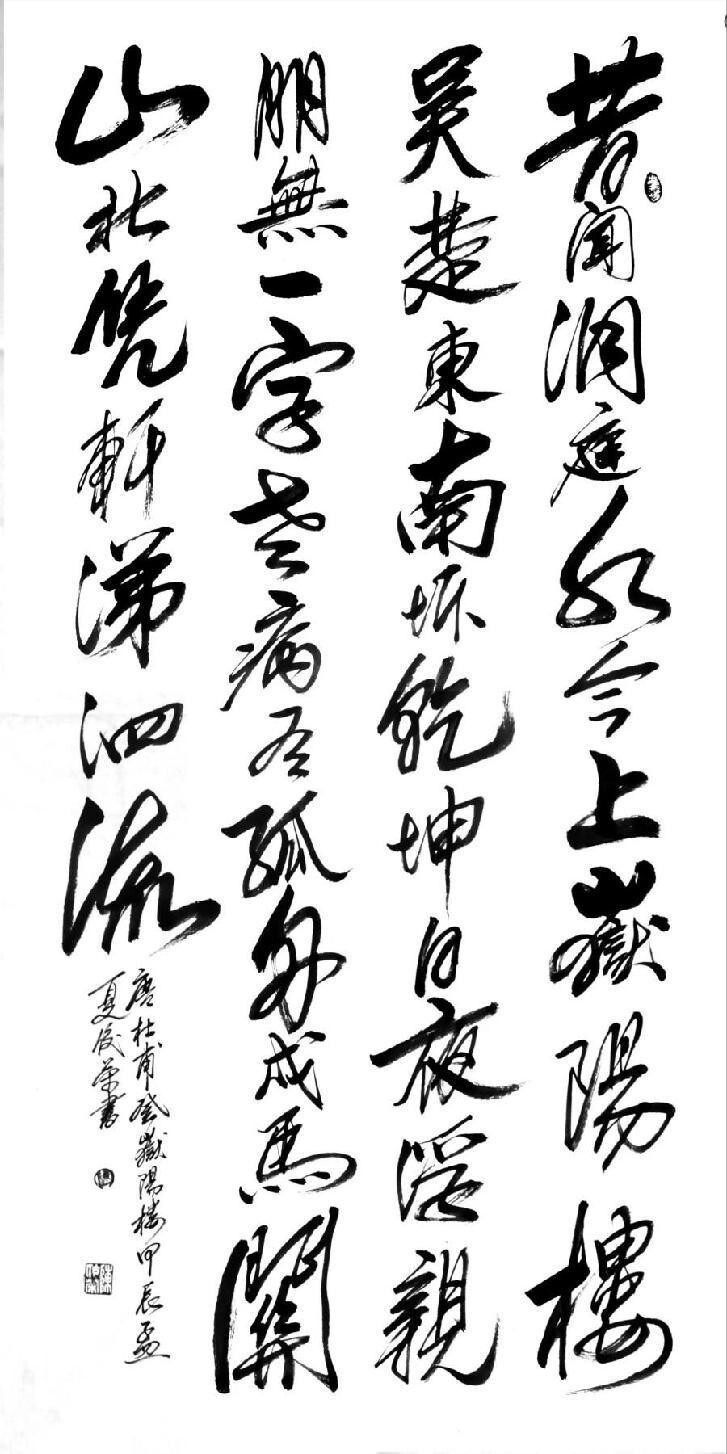 昔聞洞庭水今上嶽陽樓
吴楚東南坼乾坤日夜浮親
朋無一字老病有孤舟戎馬關
山北凭軒涕泗流
唐杜甫登嶽陽楼甲辰孟
夏俊荣書